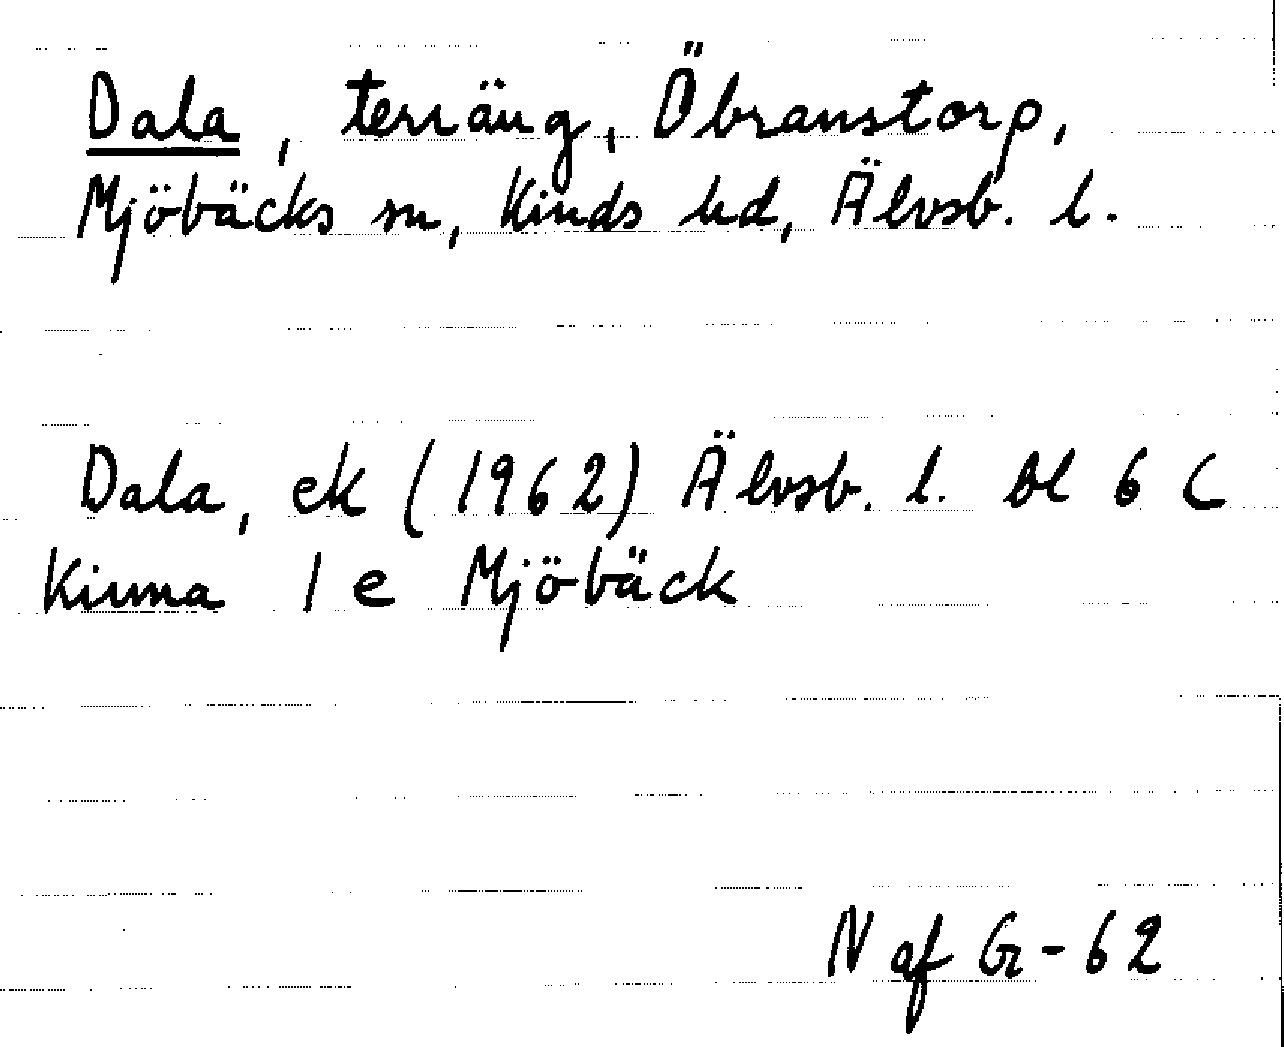 Dala, terräng, Öbranstorp,
Mjöbäcks sn, Kinds hd, Älvsb. l.
Dala, ek (1962) Älvsb. l. bl 6 C
Kinna 1 e Mjöbäck
N af Gr - 62